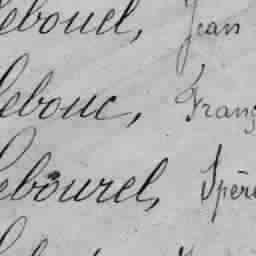 Lebouc, Jean
Lebouc, Franç
Lebourel, Spére